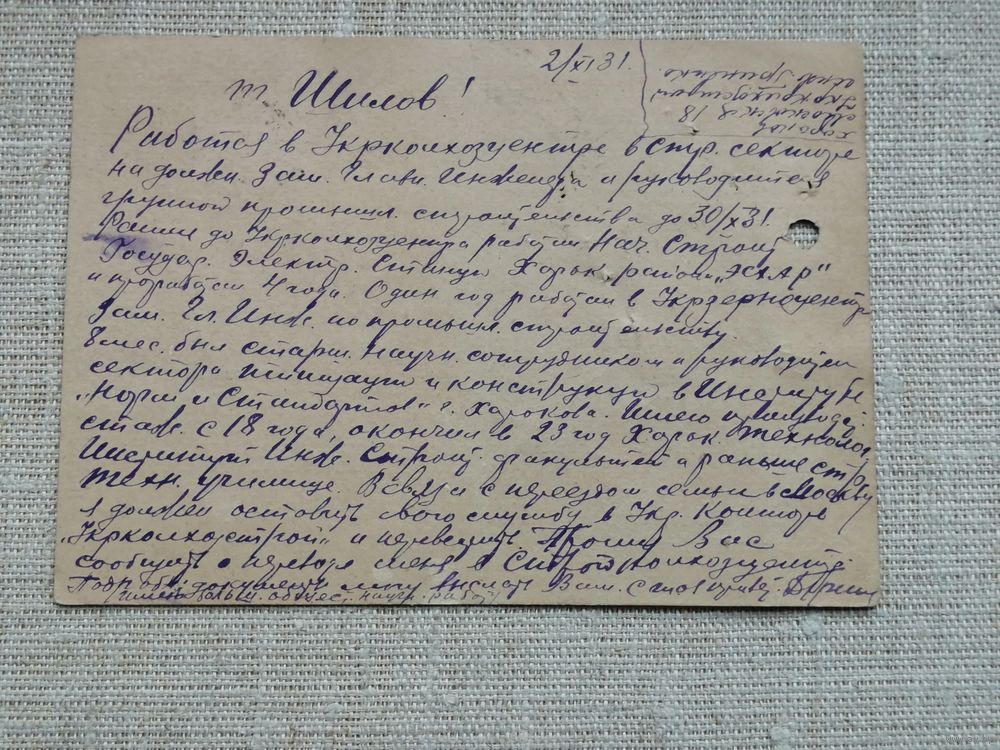 2/XI 31.
Харьков
Московская 18
Укрколхозстрой
инж.
т. Шилов!
Работая в Укрколхозцентре в стр. секторе
на должн. Зам. Главн. Инженера и руководителя
группой промышл. строительства до 30/XI 31.
Ранее до Укрколхозцентра работал Нач. Строит
Государ. Электр. Станции Харьк. района "ЭСХАР"
и проработал 4 года. Один год работал в Укрзерноцентр
Зам. Гл. Инж. по промышл. строительству
8 мес. был старш. научн. сотрудником и руководител
сектора типизации и конструкции в Институте
"Норм и Стандартов" г. Харькова. Имею производ.
стаж. с 18 года, окончил в 23 год Харьк. Технолог.
Институт Инж. Строит. факультет а раньше стр.
техн. училище. В связи с переездом семьи в Москву
я должен оставить свою службу в Укр. Конторе
"Укрколхозстрой" и перевестись Прошу Вас
сообщить о переводе меня в Стройколхозцентр.
Подробные документы могу выслать Вам. С тов. прив.
имею больш. общест. научн. работу